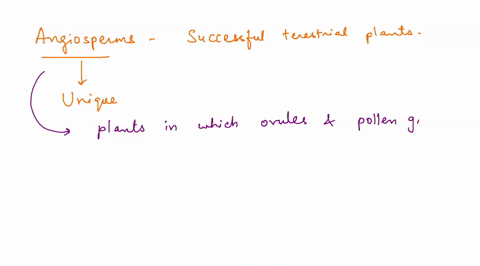 Angiosperms - Successful terestrial plants.
Unique
plants in which ovules & pollen g